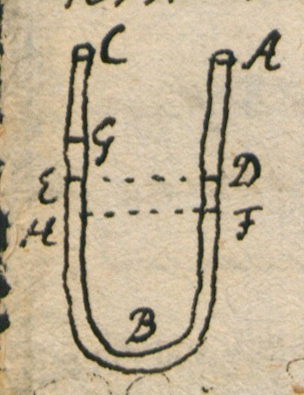 C A
G
E D
H F
B